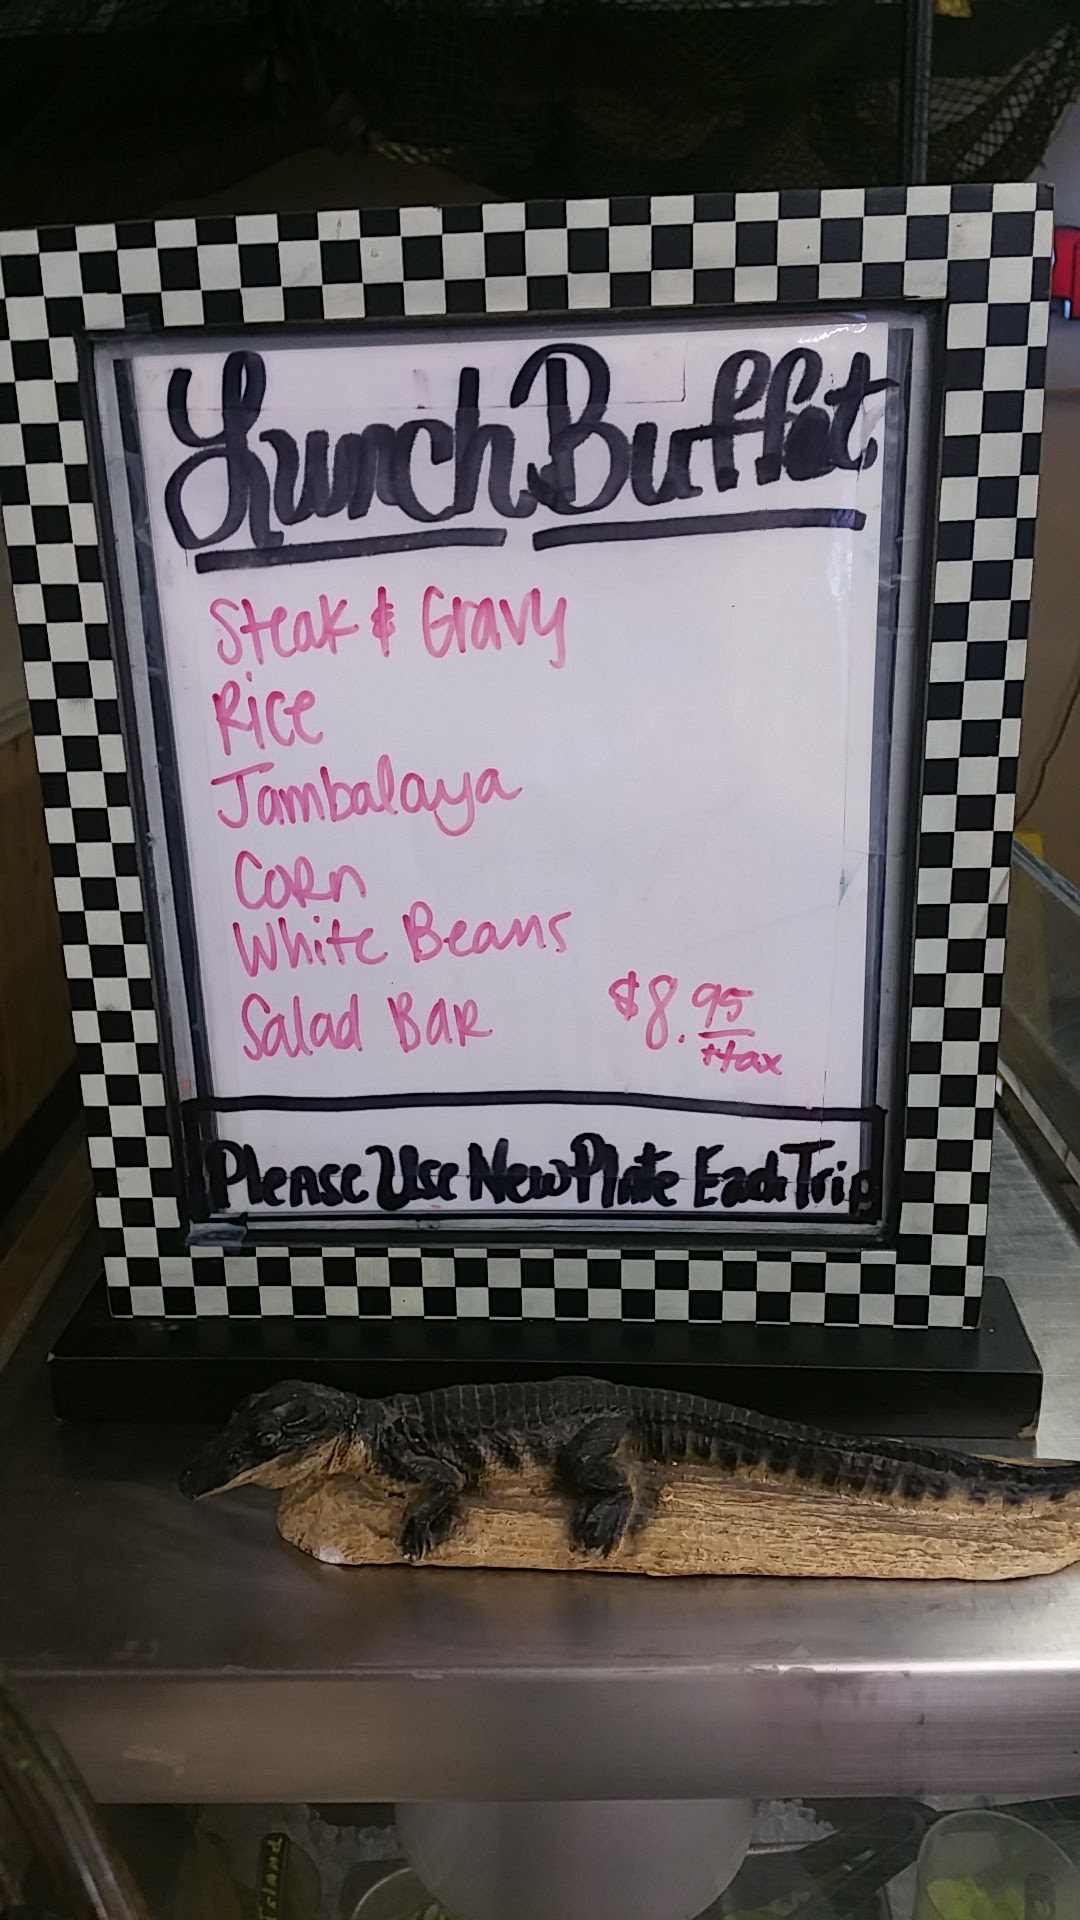 Lunch Buffet
Steak & Gravy
Rice
Jambalaya
Corn
White Beans
Salad Bar $8.95
+tax
Please Use New Plate Each Trip
Island